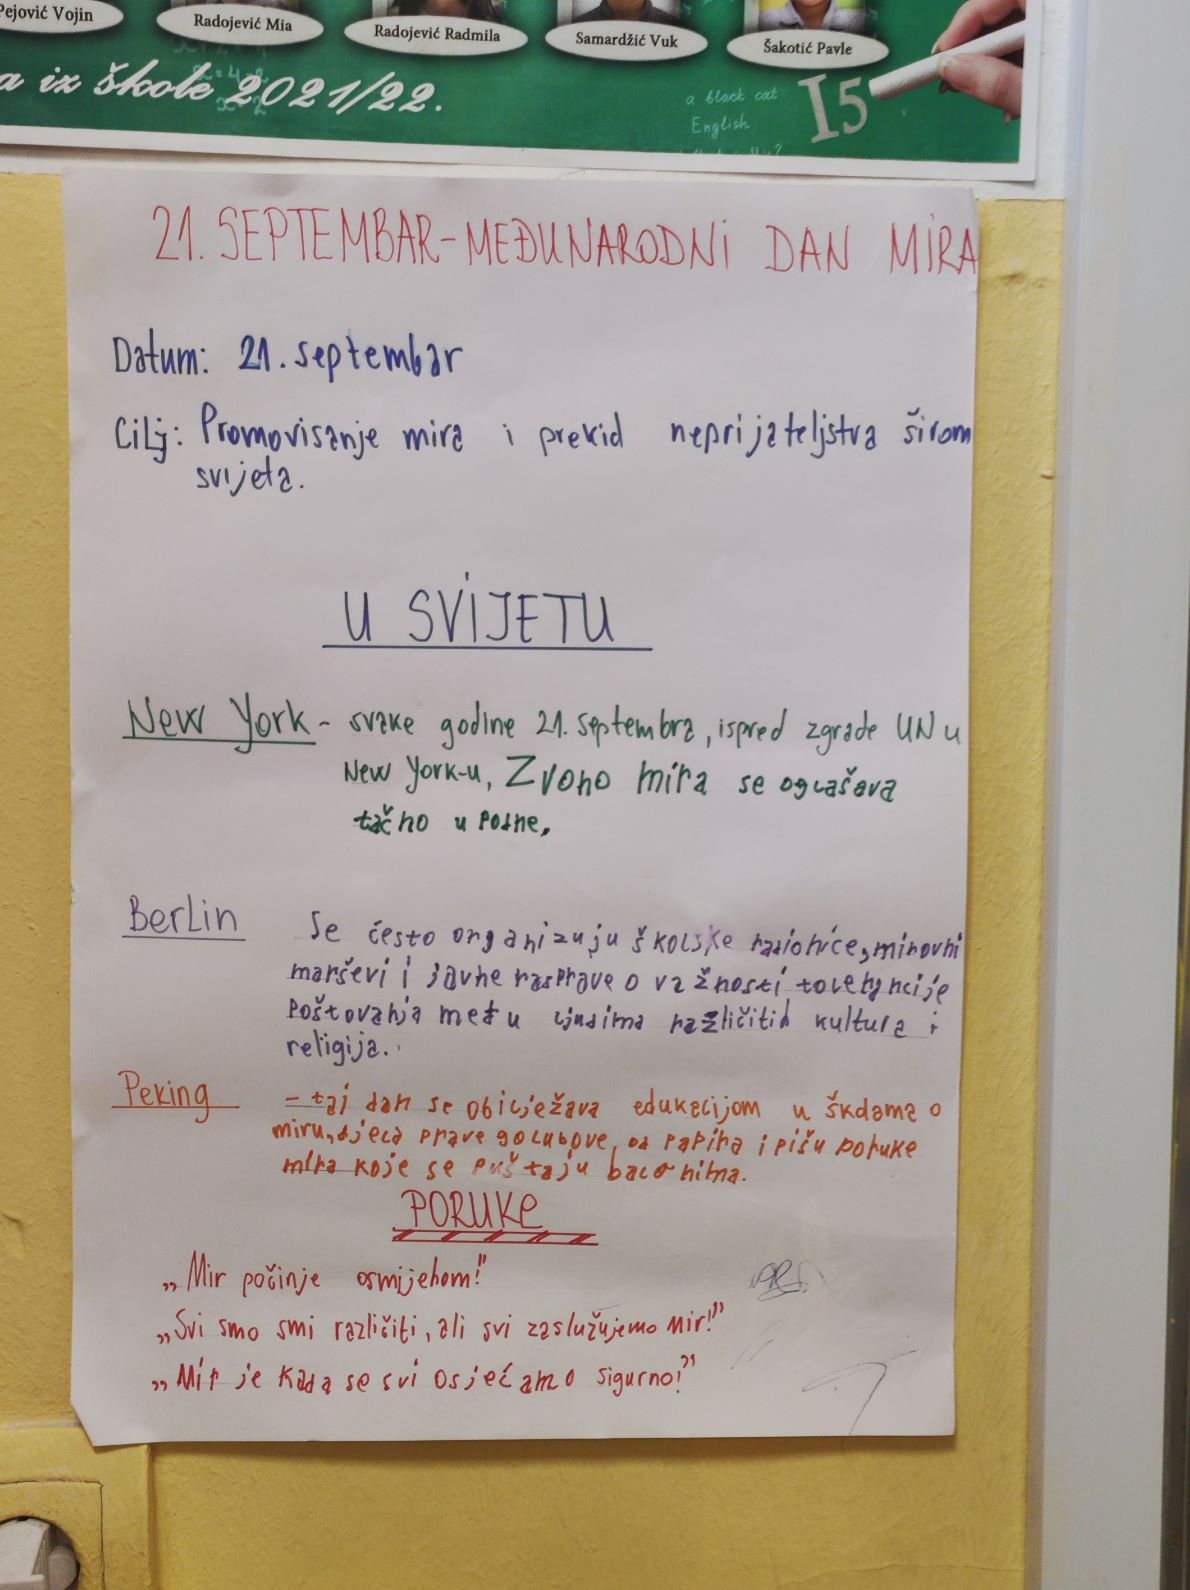 Pejović Vojin
Radojević Mia
Radojević Radmila
Samardžić Vuk
Šakotić Pavle
a iz škole 2021/22.
a black cat
English
I5
21. SEPTEMBAR-MEĐUNARODNI DAN MIRA
Datum: 21. septembar
Cilj: Promovisanje mira i prekid neprijateljstva širom
svijeta.
U SVIJETU
New York - svake godine 21. septembra, ispred zgrade UN u
New York-u, Zvono mira se oglašava
tačno u podne,
Berlin Se često organizuju školske radionice, mirovni
marševi i javne rasprave o važnosti tolerancije
poštovanja među ljudima različitih kultura i
religija.
Peking - taj dan se obilježava edukacijom u školama o
miru, djeca prave golubove, od papira i pišu poruke
mira koje se puštaju balonima.
PORUKE
„Mir počinje osmijehom!"
„Svi smo smi različiti, ali svi zaslužujemo mir!"
„Mir je kada se svi osjećamo sigurno!"